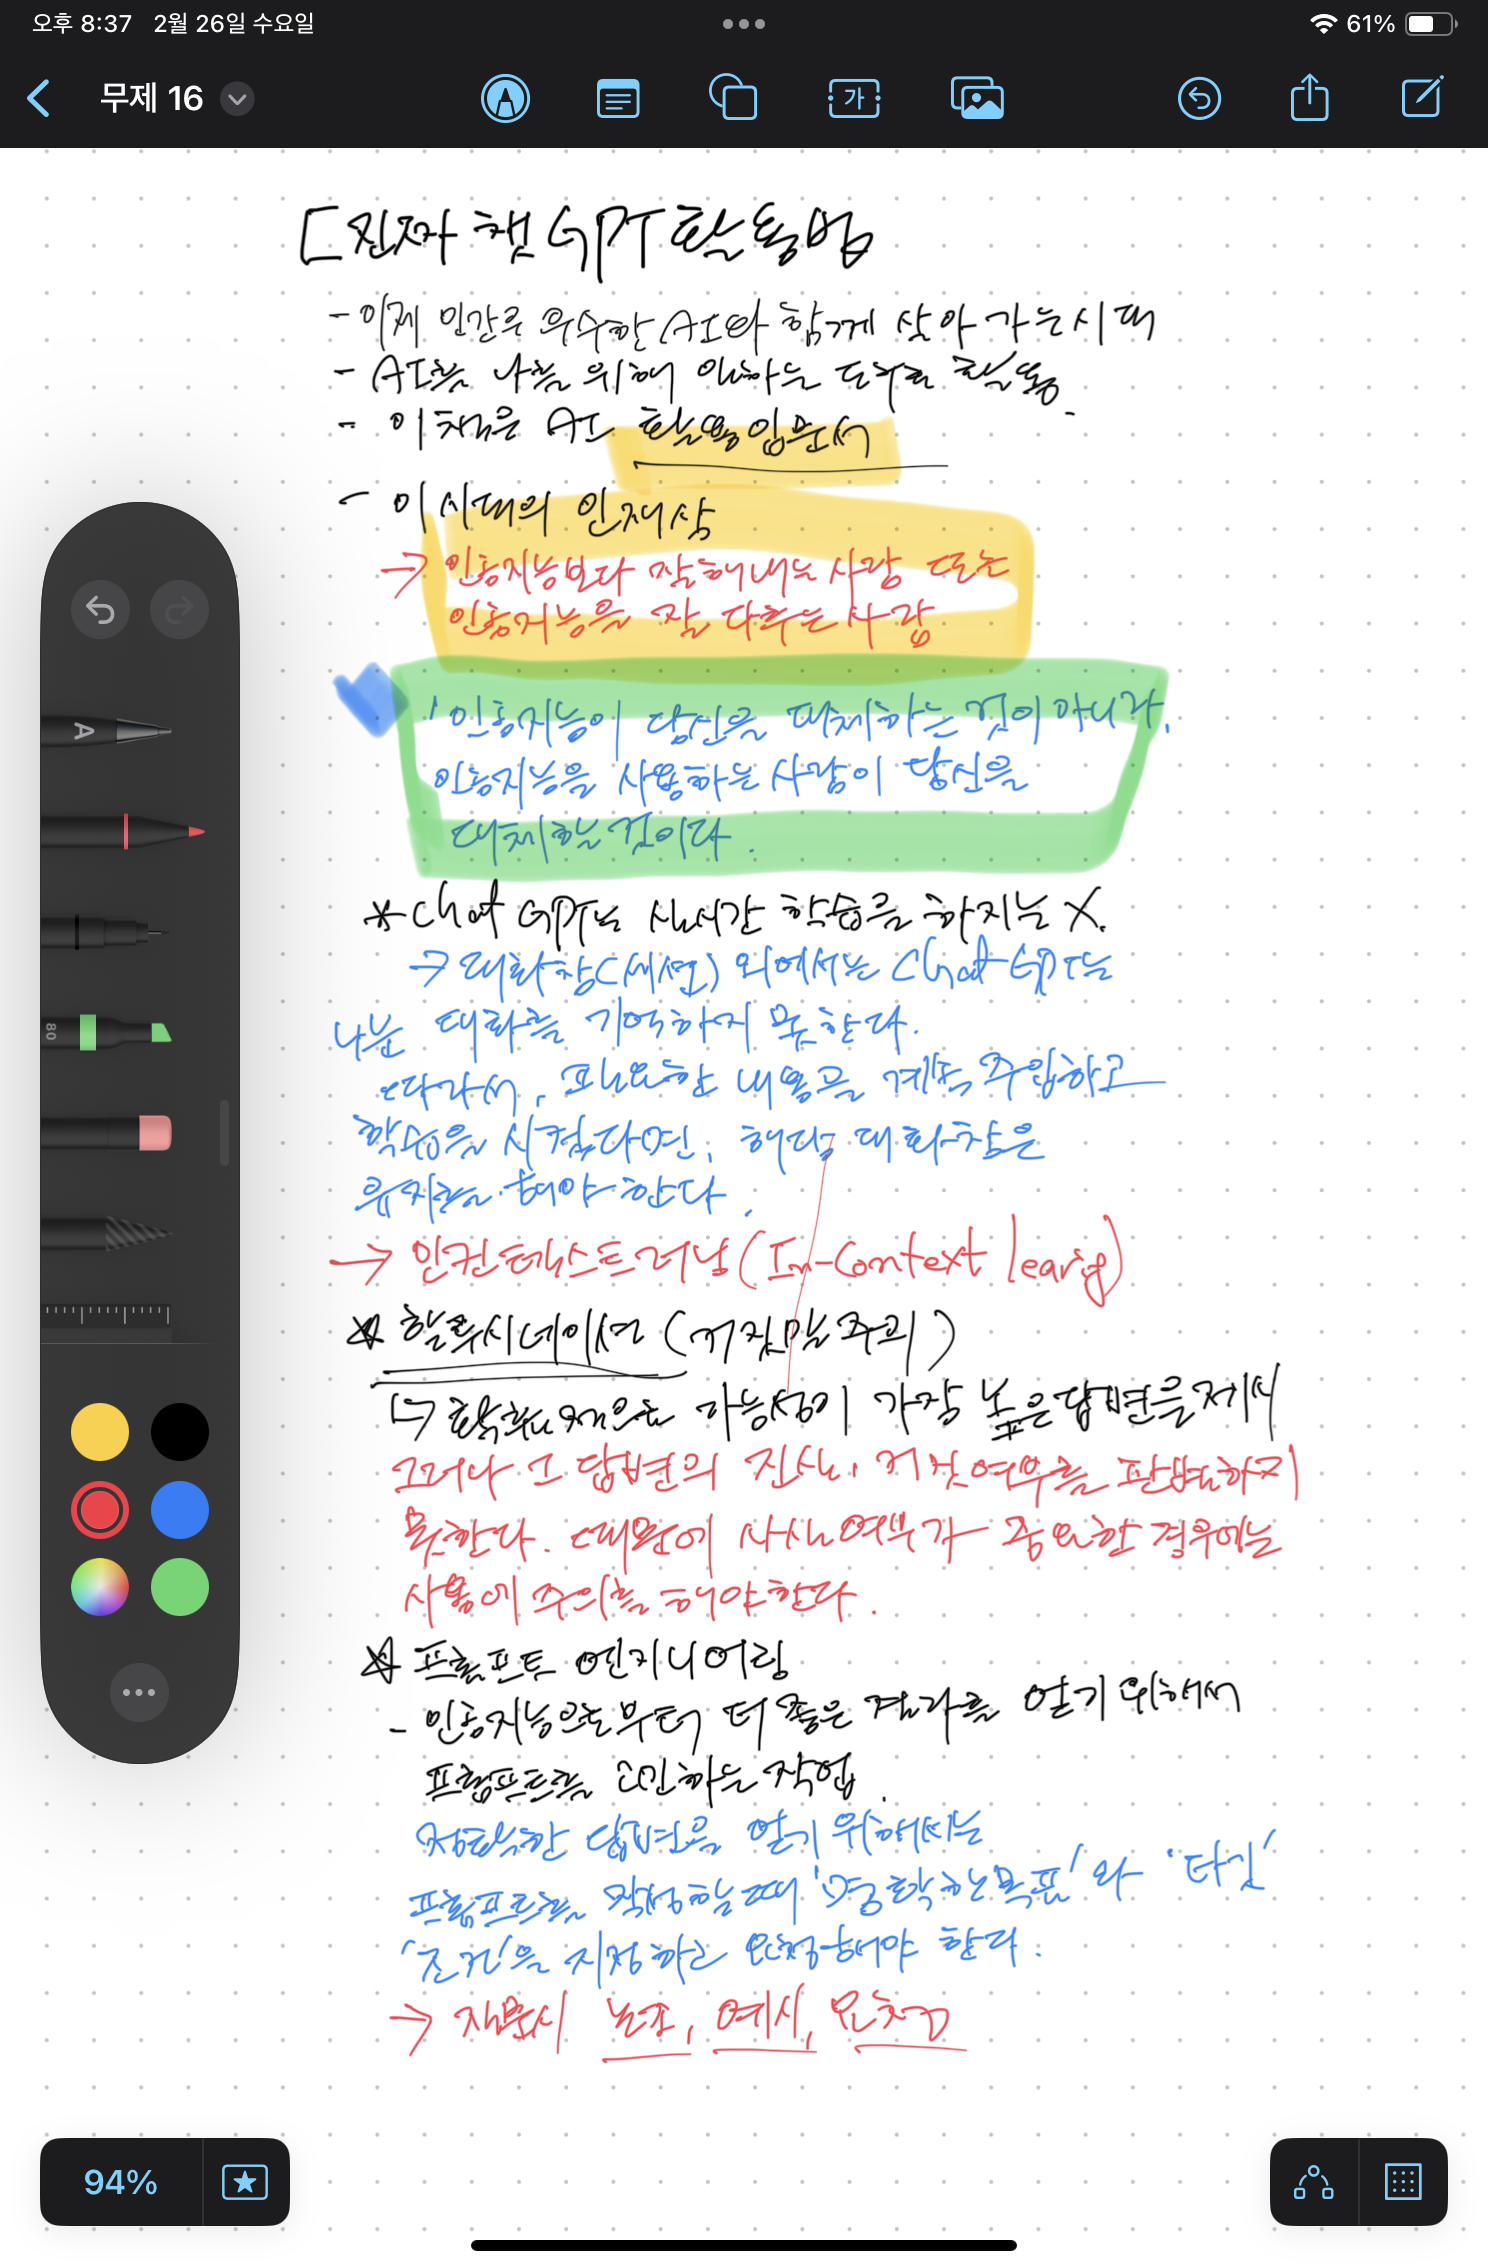 오후 8:37 2월 26일 수요일
61%
무제 16
가
[진짜 챗GPT 활용법
- 이제 인간은 우수한 AI와 함께 살아가는 시대
- AI를 나를 위해 일하는 도구로 활용.
- 이 책은 AI 활용 입문서
- 이 시대의 인재상
→ 인공지능보다 잘 해내는 사람 또는
인공지능을 잘 다루는 사람
'인공지능이 당신을 대체하는 것이 아니라,
인공지능을 사용하는 사람이 당신을
대체하는 것이다.
* Chat GPT는 실시간 학습을 하지는 X.
→ 대화창(세션) 외에서는 Chat GPT는
나눈 대화를 기억하지 못한다.
따라서, 필요한 내용을 계속 주입하고
학습을 시켰다면, 해당 대화창은
유지를 해야 한다.
→ 인컨텍스트 러닝(In-Context learig)
☆ 할루시네이션 (거짓말 주의)
↳ 확률적으로 가능성이 가장 높은 답변을 제시
그러나 그 답변의 진실, 거짓여부를 판별하지
못한다. 때문에 사실여부가 중요한 경우에는
사용에 주의를 해야한다.
☆ 프롬프트 엔지니어링
- 인공지능으로부터 더 좋은 결과를 얻기 위해서
프롬프트를 고민하는 작업.
정확한 답변을 얻기 위해서는
프롬프트를 작성할 때 '명확한 목표'와 '타깃'
'조건'을 지정하고 요청해야 한다.
→ 질문시 논조, 예시, 요청
A
80
94%